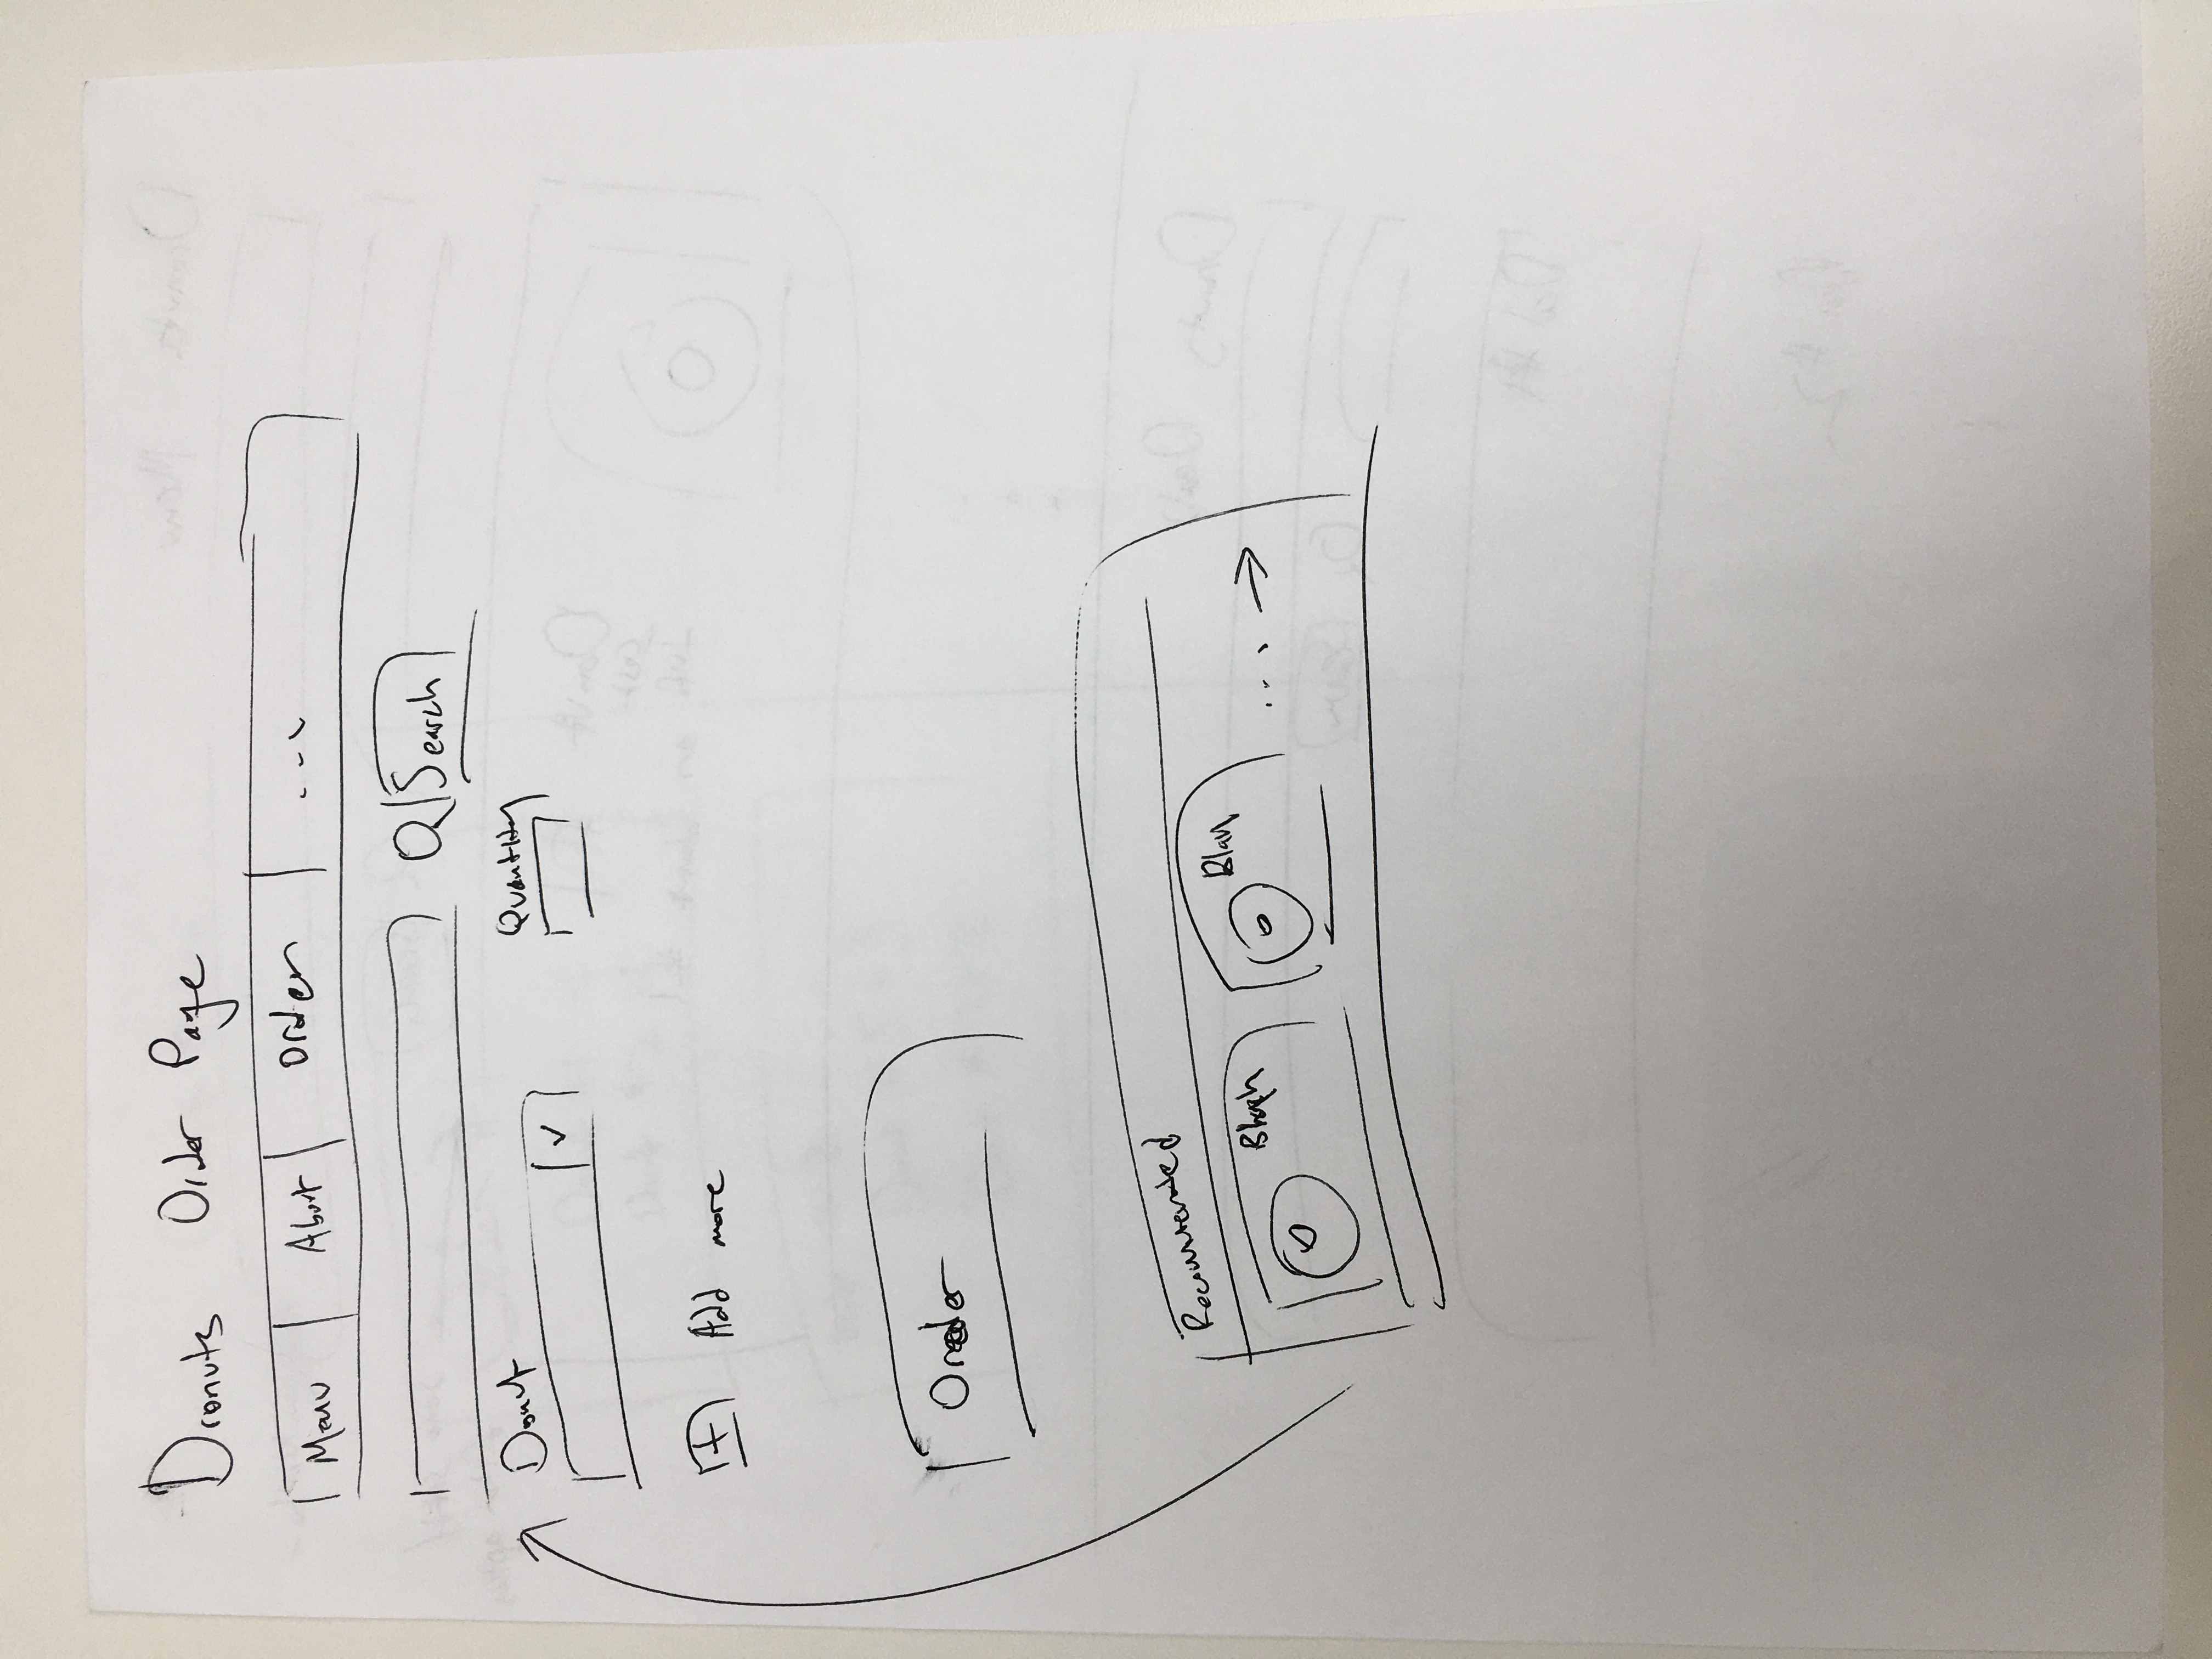 Dronuts Order Page
Menu About Order ...
Search
Donut Quantity
+ Add more
Order
Recommended
Blah Blah ...